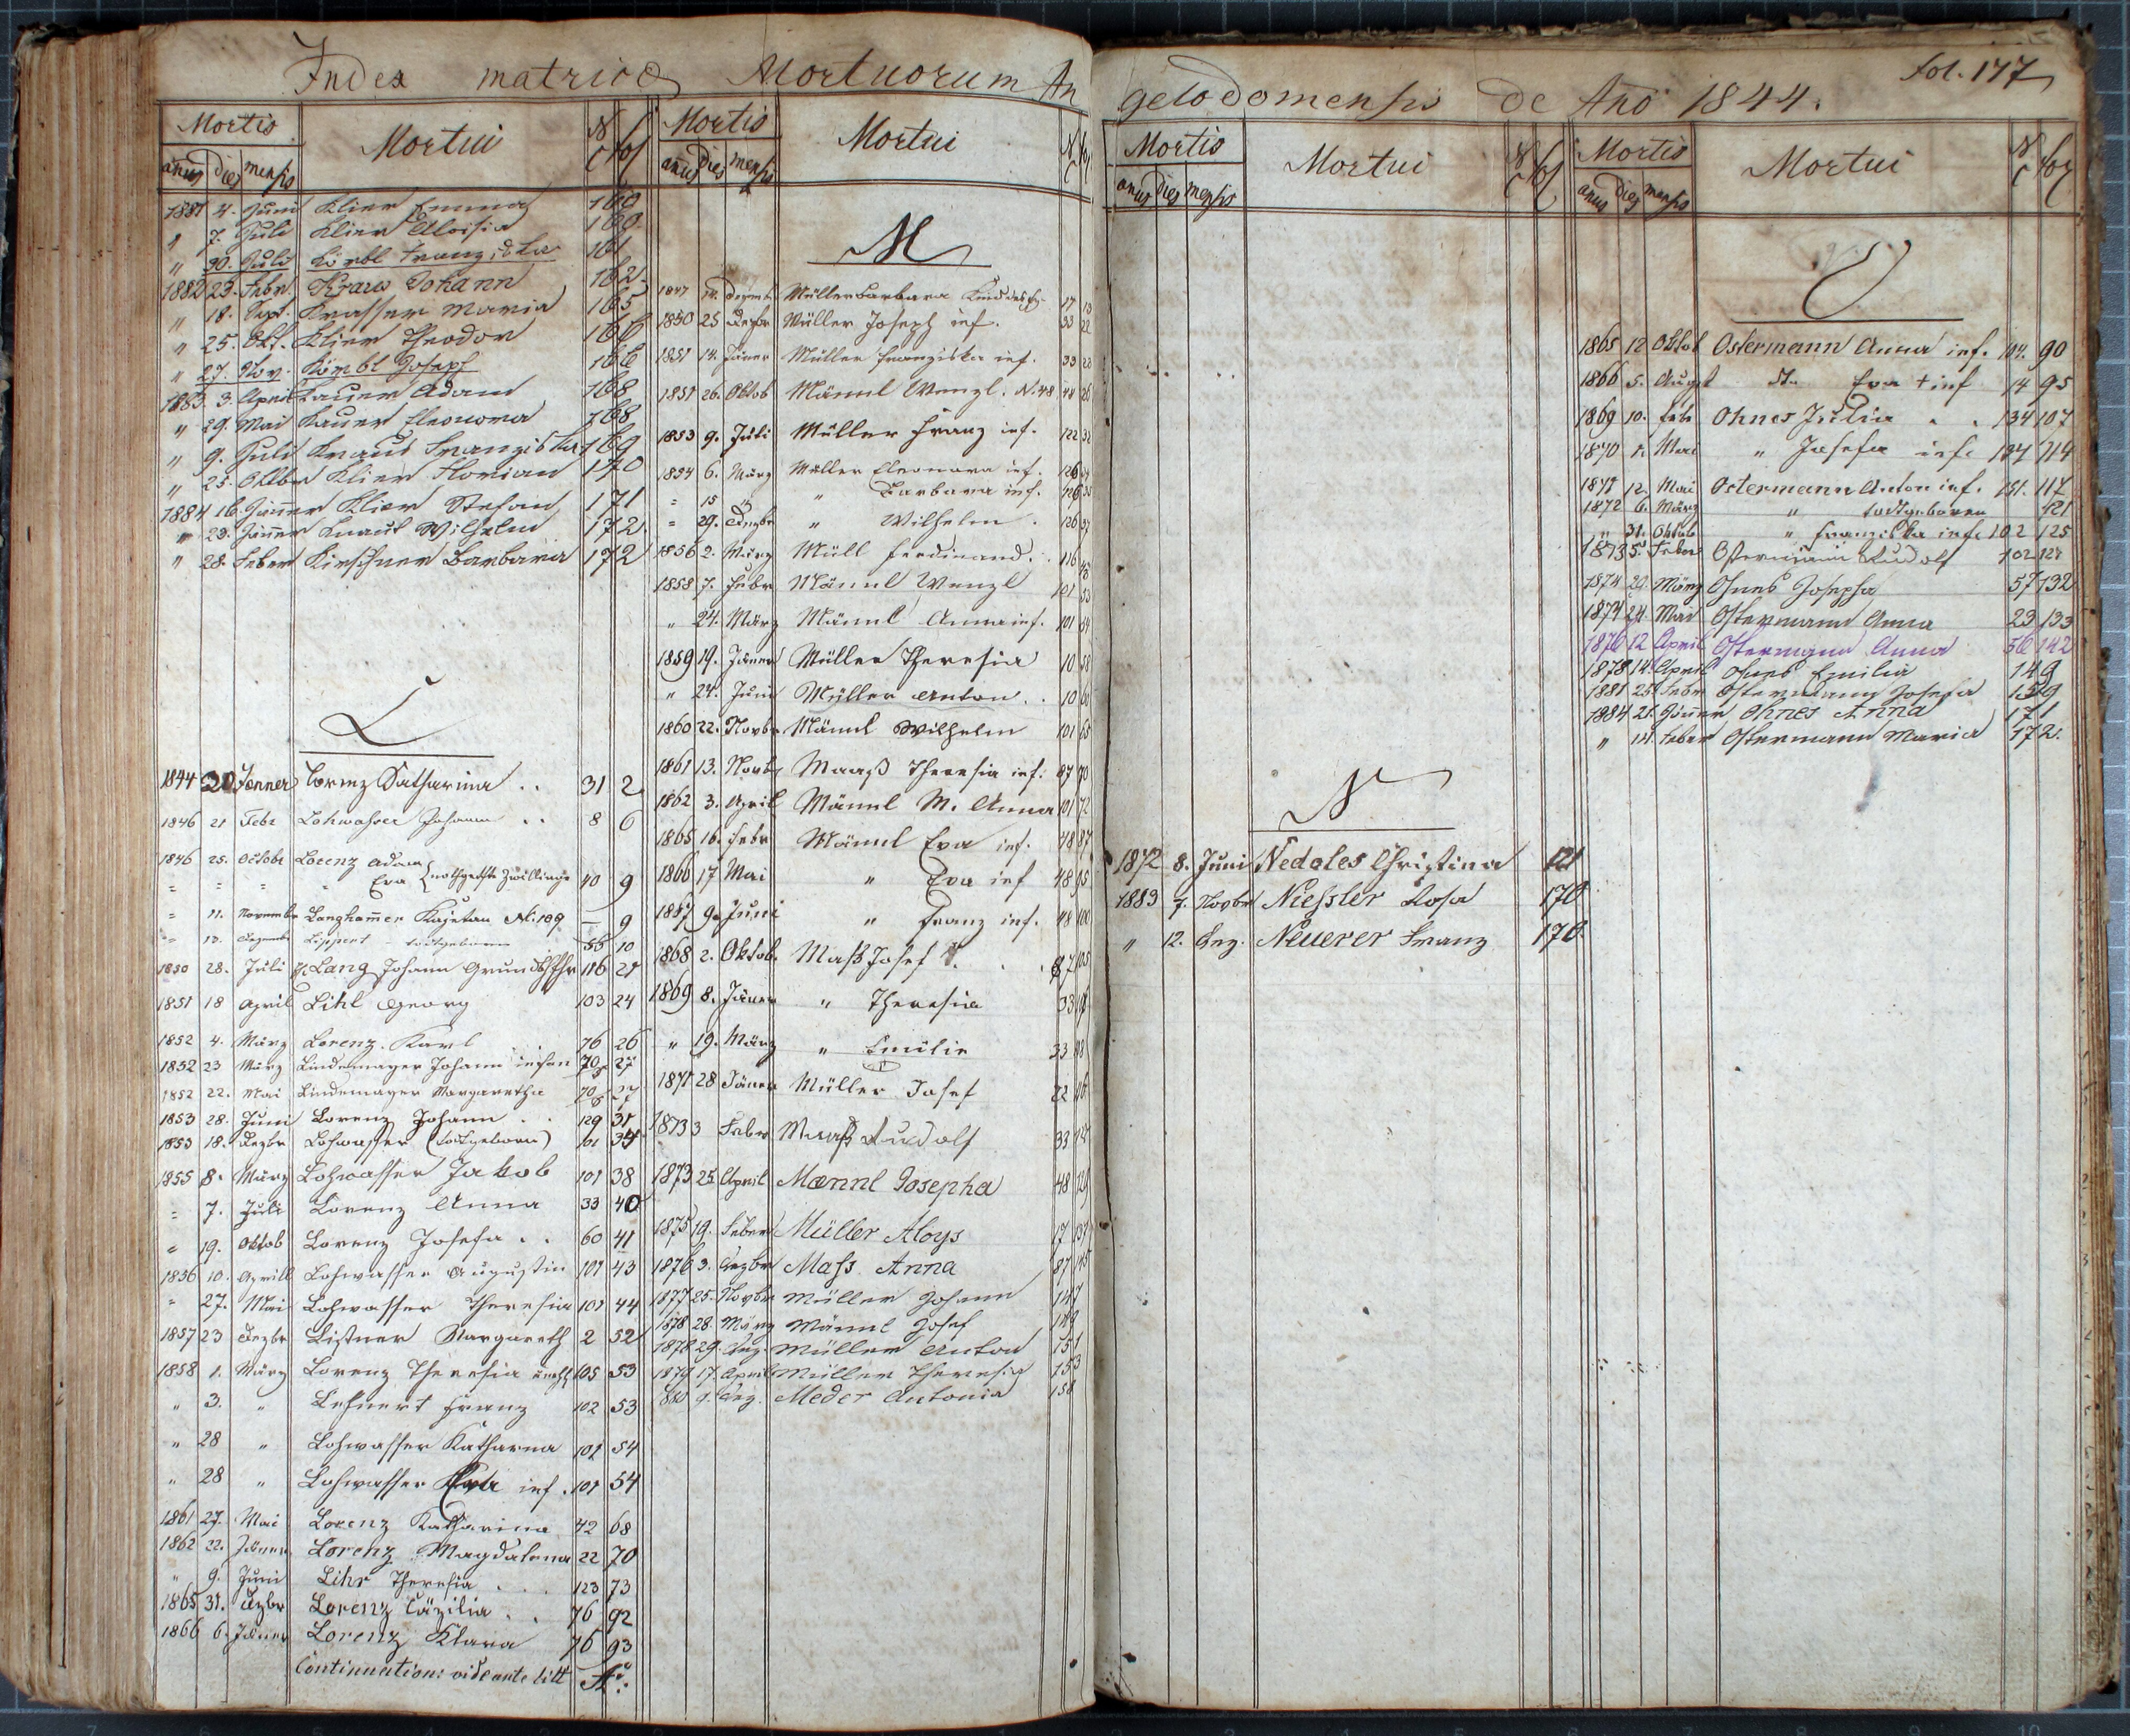 Index matricæ Mortuorum An
Mortis Mortui N C fol
anus dies mensis
1881 4. Juni Klier Emma 160
" 7. Juli Klier Aloisia 160
" 30. Juli Körbl Franz 161
1882 23. Febr. Kraus Johann 162.
" 18. Sept. Krasser Maria 165
" 25. Okt. Klier Theodor 166
" 27. Nov. Körbl Josepf 166
1883 3. April Kauer Adam 168
" 29. Mai Kauer Eleonora 168
" 9. Juli Kraus Franziska 169
" 25. Oktbr Klier Florian 170
1884 16. Jänner Klier Stefan 171
" 23. Jänner Knaut Wilhelm 172
" 28. Feber Kirschner Barbara 172
L
1844 20 Jenner Lorenz Katharina . . 31 2
1846 21 Febr Lohwasser Johann . . 8 6
1846 25. Octobr Lorenz Adam
= = = " Eva nothgetfte Zwillinge 40 9
= 11. November Langhamer Kajetan Nr: 109 — 9
= 13. Dezembr Lippert - todtgeboren 56 10
1850 28. Juli Lang Johann 116 21
1851 18 April Lihl Georg 103 24
1852 4. März Lorenz Karl 76 26
1852 23 März Lindemayer Johann infan 70 27
1852 22. Mai Lindemayer Margaretha 70 27
1853 28. Juni Lorenz Johann . . 129 31
1853 18. Dezbr Lohwasser (todtgeboren) 101 34
1855 8. März Lohwasser Jakob 101 38
= 7. Juli Lorenz Anna 33 40
= 19. Oktob Lorenz Josefa . . 60 41
1856 10. Aprill Lohwasser Augustin 101 43
= 27. Mai Lohwasser Theresia 101 44
1857 23 Dezbr Listner Margareth 2 52
1858 1. März Lorenz Theresia 105 53
" 3. " Lehnert Franz 102 53
" 28 " Lohwasser Katharina 101 54
" 28 " Lohwasser Eva inf. 101 54
1861 27. Mai Lorenz Katharina 42 68
1862 22. Jäner Lorenz Magdalena 22 70
" 9. Juni Lihr Theresia . . . 123 73
1865 31. Dezbr Lorenz Cäzilia . . 76 92
1866 6. Jäner Lorenz Klara 76 93
Continuation: vide ante litt A:
Mortis Mortui N C fol
anus dies mensis
M
1847 14. Dezemb Müller Barbara Kind des 17 13
1850 25 Dezbr Müller Joseph inf. 33 22
1851 14. Jäner Müller Franziska inf. 33 23
1851 26. Oktob Männl Wenzl. N. 48 48 26
1853 9. Juli Müller Franz inf. 122 32
1854 6. März Müller Eleonora inf. 126 34
= 15 " " Barbara inf. 126 35
= 29. Dezbr " Wilhelm . 126 37
1856 2. März Müll Ferdinand. . 116 43
1858 7. Febr Männl Wenzl 101 53
" 24. März Männl Anna inf. 101 54
1859 19. Jäner Müller Theresia 10 58
" 24. Juni Müller Anton . . 10 60
1860 22. Novbr Männl Wilhelm 101 65
1861 13. Novbr Maaß Theresia inf: 87 70
1862 3. April Männl M. Anna 101 72
1865 16. Febr Männl Eva inf. 48 87
1866 17 Mai " Eva inf 48 95
1867 9. Juni " Franz inf. 48 100
1868 2. Oktob. Maß Josef . . . 87 105
1869 8. Jäner " Theresia 33
" 19. März " Emilie 33
1871 28 Jäner Müller Josef 22 116
1873 3 Feber Maaß Rudolf 33 127
1873 25 April Mœnnl Josepha 48
1875 19. Feber Müller Aloys 17 137
1876 3. Dezbr Mass Anna 87 145
1877 25. Novbr Müller Johann 147
1878 28. März Männl Josef 149
1878 29. Dez. Müller Anton 151
1879 17. April Müller Theresia 153
1880 9. Dez. Meder Antonia 158
gelodomensis de Ano 1844. fol. 177
Mortis Mortui N C fol
anus dies mensis
N
1872 8. Juni Nedoles Christina 121
1883 7. Novbr Niessler Rosa 170
" 12. Dez. Neuerer Franz 170.
Mortis Mortui N C fol
anus dies mensis
O
1865 12 Oktob Ostermann Anna inf. 104. 90
1866 5. Augst dto Eva † inf 14 95
1869 10. Febr Ohnes Julia . . 134 107
1870 1. Mai " Josefa inf. 134 114
1871 12. Mai Ostermann Anton inf. 151. 117
1872 6. März " todtgeboren 121
" 31. Oktob " Franziska inf. 102 125
1873 5. Feber Ostermann Rudolf 102 127
1874 29. März Ohnes Josepha 57 132
1874 24. Mai Ostermann Anna 23 133
1876 12 April Ostermann Anna 56 142
1878 14. April Ohnes Emilia 149
1881 25. Febr Ostermann Josefa 159
1884 21. Jänner Ohnes Anna 171
" 14. Feber Ostermann Maria 172.